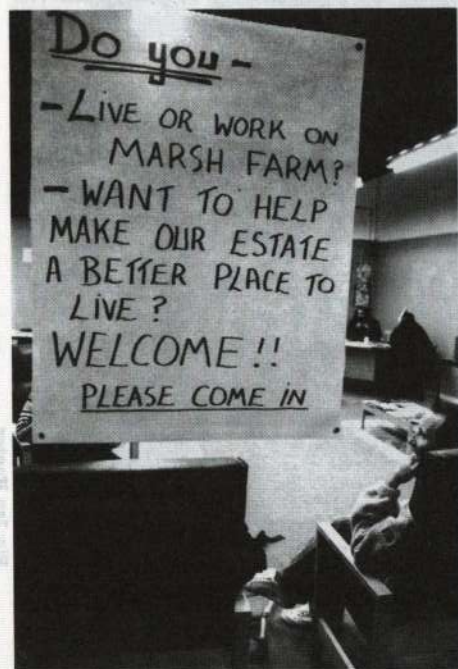 Do you -
- LIVE OR WORK ON
MARSH FARM?
- WANT TO HELP
MAKE OUR ESTATE
A BETTER PLACE TO
LIVE?
WELCOME!!
PLEASE COME IN